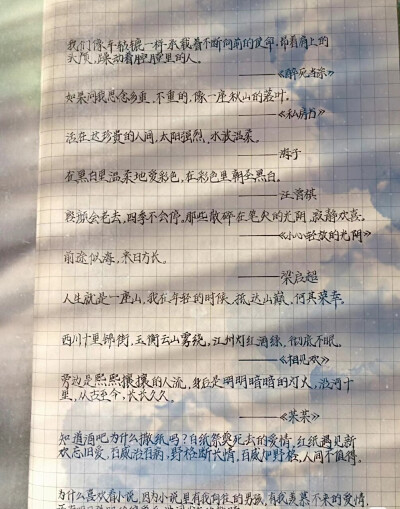 我们像车轱辘一样承载着不断向前的使命,昂着肩上的
头颅,躁动着腔膛里的人。
——《醉死当涂》
如果问我思念多重,不重的,像一座秋山的落叶。
——《私房书》
活在这珍贵的人间,太阳强烈,水波温柔。
——海子
在黑白里温柔地爱彩色,在彩色里朝圣黑白。
——汪曾祺
容颜会老去,四季不会停。那些散碎在笔尖的光阴,寂静欢喜。
——《小心轻放的光阴》
前途似海,来日方长。
——梁启超
人生就是一座山,我在年轻的时候,抵达山巅,何其荣幸。
四川十里锦街,玉衡云山雾绕,江州灯红酒绿,彻夜不眠。
——《相见欢》
旁边是熙熙攘攘的人流,身后是明明暗暗的灯火,浩浩十
里,从古至今,长长久久。
——《某某》
知道酒吧为什么撒纸吗?白纸祭奠死去的爱情,红纸遇见新
欢忘旧爱,百威治百病,野格断长情,百威伊野格,人间不值得。
为什么喜欢看小说,因为小说里有我向往的男孩,有我羡慕不来的爱情,